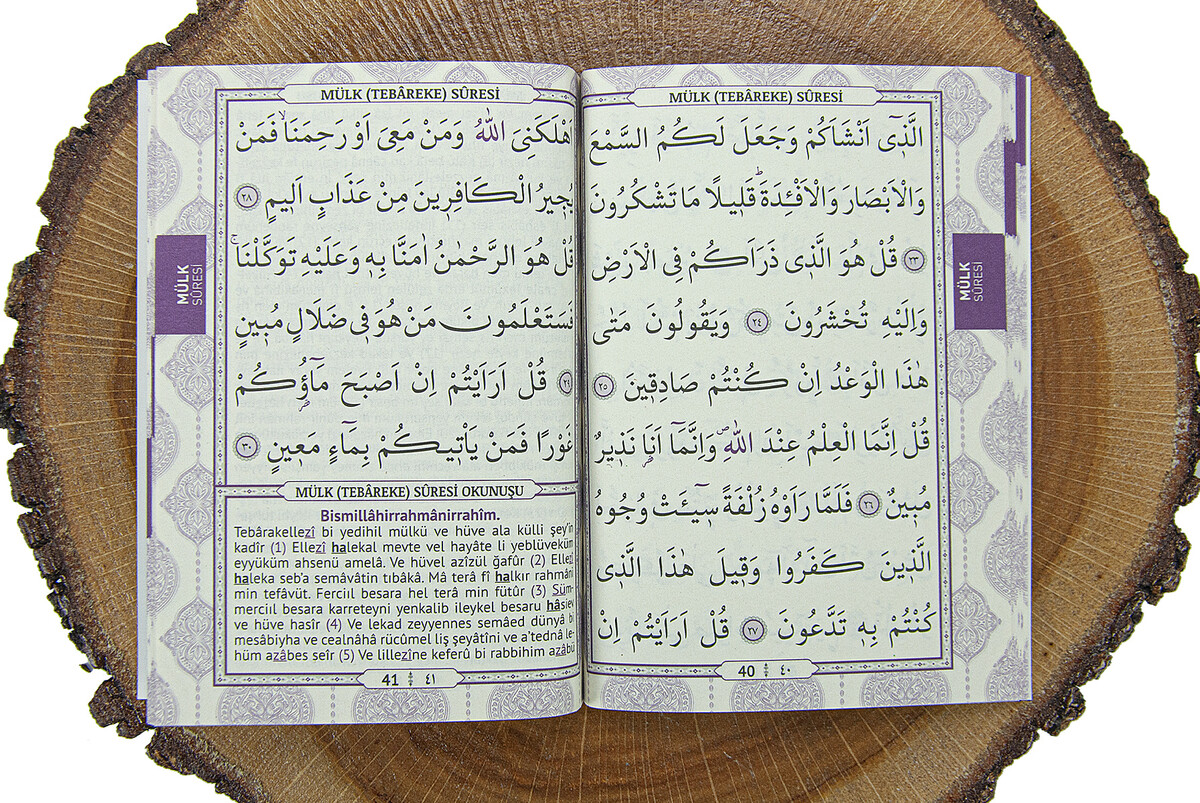 MÜLK (TEBÂREKE) SÛRESİ
اَلَّذ۪ٓي اَنْشَاَكُمْ وَجَعَلَ لَكُمُ السَّمْعَ
وَالْاَبْصَارَ وَالْاَفْـِٔدَةَۜ قَل۪يلًا مَا تَشْكُرُونَ
﴿٢٣﴾ قُلْ هُوَ الَّذ۪ي ذَرَاَكُمْ فِي الْاَرْضِ
وَاِلَيْهِ تُحْشَرُونَ ﴿٢٤﴾ وَيَقُولُونَ مَتٰى
هٰذَا الْوَعْدُ اِنْ كُنْتُمْ صَادِق۪ينَ ﴿٢٥﴾
قُلْ اِنَّمَا الْعِلْمُ عِنْدَ اللّٰهِۖ وَاِنَّمَٓا اَنَا۬ نَذ۪يرٌ
مُب۪ينٌ ﴿٢٦﴾ فَلَمَّا رَاَوْهُ زُلْفَةً س۪ٓيـَٔتْ وُجُوهُ
الَّذ۪ينَ كَفَرُوا وَق۪يلَ هٰذَا الَّذ۪ي
كُنْتُمْ بِه۪ تَدَّعُونَ ﴿٢٧﴾ قُلْ اَرَاَيْتُمْ اِنْ
40 ٤٠
MÜLK
SÛRESİ
MÜLK (TEBÂREKE) SÛRESİ
اَهْلَكَنِيَ اللّٰهُ وَمَنْ مَعِيَ اَوْ رَحِمَنَاۙ فَمَنْ
يُج۪يرُ الْكَافِر۪ينَ مِنْ عَذَابٍ اَل۪يمٍ ﴿٢٨﴾
قُلْ هُوَ الرَّحْمٰنُ اٰمَنَّا بِه۪ وَعَلَيْهِ تَوَكَّلْنَاۚ
فَسَتَعْلَمُونَ مَنْ هُوَ ف۪ي ضَلَالٍ مُب۪ينٍ
﴿٢٩﴾ قُلْ اَرَاَيْتُمْ اِنْ اَصْبَحَ مَٓاؤُ۬كُمْ
غَوْرًا فَمَنْ يَأْت۪يكُمْ بِمَٓاءٍ مَع۪ينٍ ﴿٣٠﴾
MÜLK (TEBÂREKE) SÛRESİ OKUNUŞU
Bismillâhirrahmânirrahîm.
Tebârakellezî bi yedihil mülkü ve hüve ala külli şey'in
kadîr (1) Ellezî halekal mevte vel hayâte li yeblüveküm
eyyüküm ahsenü amelâ. Ve hüvel azîzül ğafûr (2) Ellezî
haleka seb'a semâvâtin tıbâkâ. Mâ terâ fî halkır rahmâni
min tefâvüt. Ferciıl besara hel terâ min fütûr (3) Süm-
merciıl besara karreteyni yenkalib ileykel besaru hâsiev
ve hüve hasîr (4) Ve lekad zeyyennes semâed dünyâ bi
mesâbiyha ve cealnâhâ rücûmel liş şeyâtîni ve a'tednâ le-
hüm azâbes seîr (5) Ve lillezîne keferû bi rabbihim azâbü
41 ٤١
MÜLK
SÛRESİ